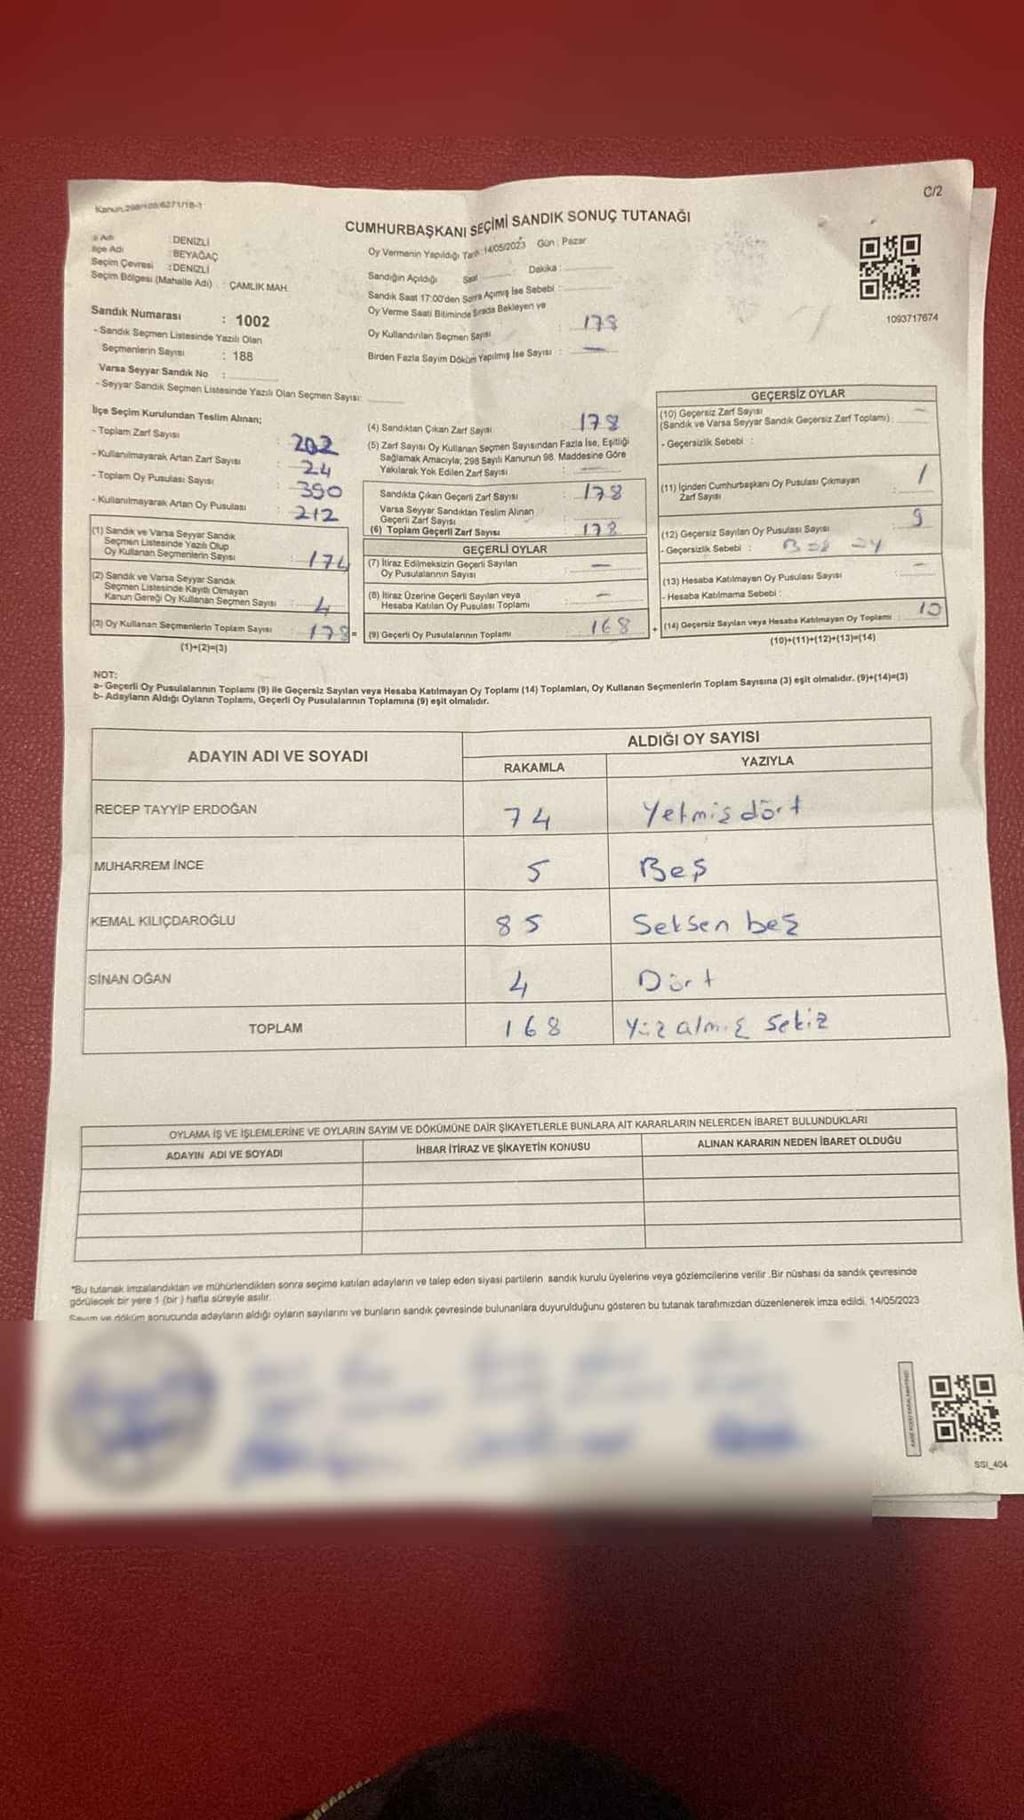 C/2
CUMHURBAŞKANI SEÇİMİ SANDIK SONUÇ TUTANAĞI
İl Adı : DENİZLİ
İlçe Adı : BEYAĞAÇ
Seçim Çevresi : DENİZLİ
Seçim Bölgesi (Mahalle Adı) : ÇAMLIK MAH.
Oy Vermenin Yapıldığı Tarih 14/05/2023 Gün : Pazar
Sandığın Açıldığı Saat Dakika :
Sandık Saat 17:00'den Sonra Açımış İse Sebebi :
Oy Verme Saati Bitiminde Sırada Bekleyen ve
Oy Kullandırılan Seçmen Sayısı : 178
Birden Fazla Sayım Döküm Yapılmış İse Sayısı : —
1093717674
Sandık Numarası : 1002
- Sandık Seçmen Listesinde Yazılı Olan
Seçmenlerin Sayısı : 188
Varsa Seyyar Sandık No :
- Seyyar Sandık Seçmen Listesinde Yazılı Olan Seçmen Sayısı:
İlçe Seçim Kurulundan Teslim Alınan;
- Toplam Zarf Sayısı : 202
- Kullanılmayarak Artan Zarf Sayısı : 24
- Toplam Oy Pusulası Sayısı : 390
- Kullanılmayarak Artan Oy Pusulası : 212
(1) Sandık ve Varsa Seyyar Sandık
Seçmen Listesinde Yazılı Olup
Oy Kullanan Seçmenlerin Sayısı : 174
(2) Sandık ve Varsa Seyyar Sandık
Seçmen Listesinde Kayıtlı Olmayan
Kanun Gereği Oy Kullanan Seçmen Sayısı : 4
(3) Oy Kullanan Seçmenlerin Toplam Sayısı : 178 =
(1)+(2)=(3)
(4) Sandıktan Çıkan Zarf Sayısı : 178
(5) Zarf Sayısı Oy Kullanan Seçmen Sayısından Fazla İse, Eşitliği
Sağlamak Amacıyla, 298 Sayılı Kanunun 98. Maddesine Göre
Yakılarak Yok Edilen Zarf Sayısı : —
Sandıkta Çıkan Geçerli Zarf Sayısı : 178
Varsa Seyyar Sandıktan Teslim Alınan
Geçerli Zarf Sayısı :
(6) Toplam Geçerli Zarf Sayısı : 178
GEÇERLİ OYLAR
(7) İtiraz Edilmeksizin Geçerli Sayılan
Oy Pusulalarının Sayısı : —
(8) İtiraz Üzerine Geçerli Sayılan veya
Hesaba Katılan Oy Pusulası Toplamı : —
(9) Geçerli Oy Pusulalarının Toplamı : 168 +
GEÇERSİZ OYLAR
(10) Geçersiz Zarf Sayısı
(Sandık ve Varsa Seyyar Sandık Geçersiz Zarf Toplamı) : —
- Geçersizlik Sebebi :
(11) İçinden Cumhurbaşkanı Oy Pusulası Çıkmayan
Zarf Sayısı : 1
(12) Geçersiz Sayılan Oy Pusulası Sayısı : 9
- Geçersizlik Sebebi :
(13) Hesaba Katılmayan Oy Pusulası Sayısı : —
- Hesaba Katılmama Sebebi :
(14) Geçersiz Sayılan veya Hesaba Katılmayan Oy Toplamı : 10
(10)+(11)+(12)+(13)=(14)
NOT:
a- Geçerli Oy Pusulalarının Toplamı (9) ile Geçersiz Sayılan veya Hesaba Katılmayan Oy Toplamı (14) Toplamları, Oy Kullanan Seçmenlerin Toplam Sayısına (3) eşit olmalıdır. (9)+(14)=(3)
b- Adayların Aldığı Oyların Toplamı, Geçerli Oy Pusulalarının Toplamına (9) eşit olmalıdır.
ADAYIN ADI VE SOYADI ALDIĞI OY SAYISI
RAKAMLA YAZIYLA
RECEP TAYYİP ERDOĞAN 74 Yetmiş dört
MUHARREM İNCE 5 Beş
KEMAL KILIÇDAROĞLU 85 Seksen beş
SİNAN OĞAN 4 Dört
TOPLAM 168 Yüz almış sekiz
OYLAMA İŞ VE İŞLEMLERİNE VE OYLARIN SAYIM VE DÖKÜMÜNE DAİR ŞİKAYETLERLE BUNLARA AİT KARARLARIN NELERDEN İBARET BULUNDUKLARI
ADAYIN ADI VE SOYADI İHBAR İTİRAZ VE ŞİKAYETİN KONUSU ALINAN KARARIN NEDEN İBARET OLDUĞU
*Bu tutanak imzalandıktan ve mühürlendikten sonra seçime katılan adayların ve talep eden siyasi partilerin sandık kurulu üyelerine veya gözlemcilerine verilir .Bir nüshası da sandık çevresinde
görülecek bir yere 1 (bir ) hafta süreyle asılır.
Sayım ve döküm sonucunda adayların aldığı oyların sayılarını ve bunların sandık çevresinde bulunanlara duyurulduğunu gösteren bu tutanak tarafımızdan düzenlenerek imza edildi. 14/05/2023
SSI_404